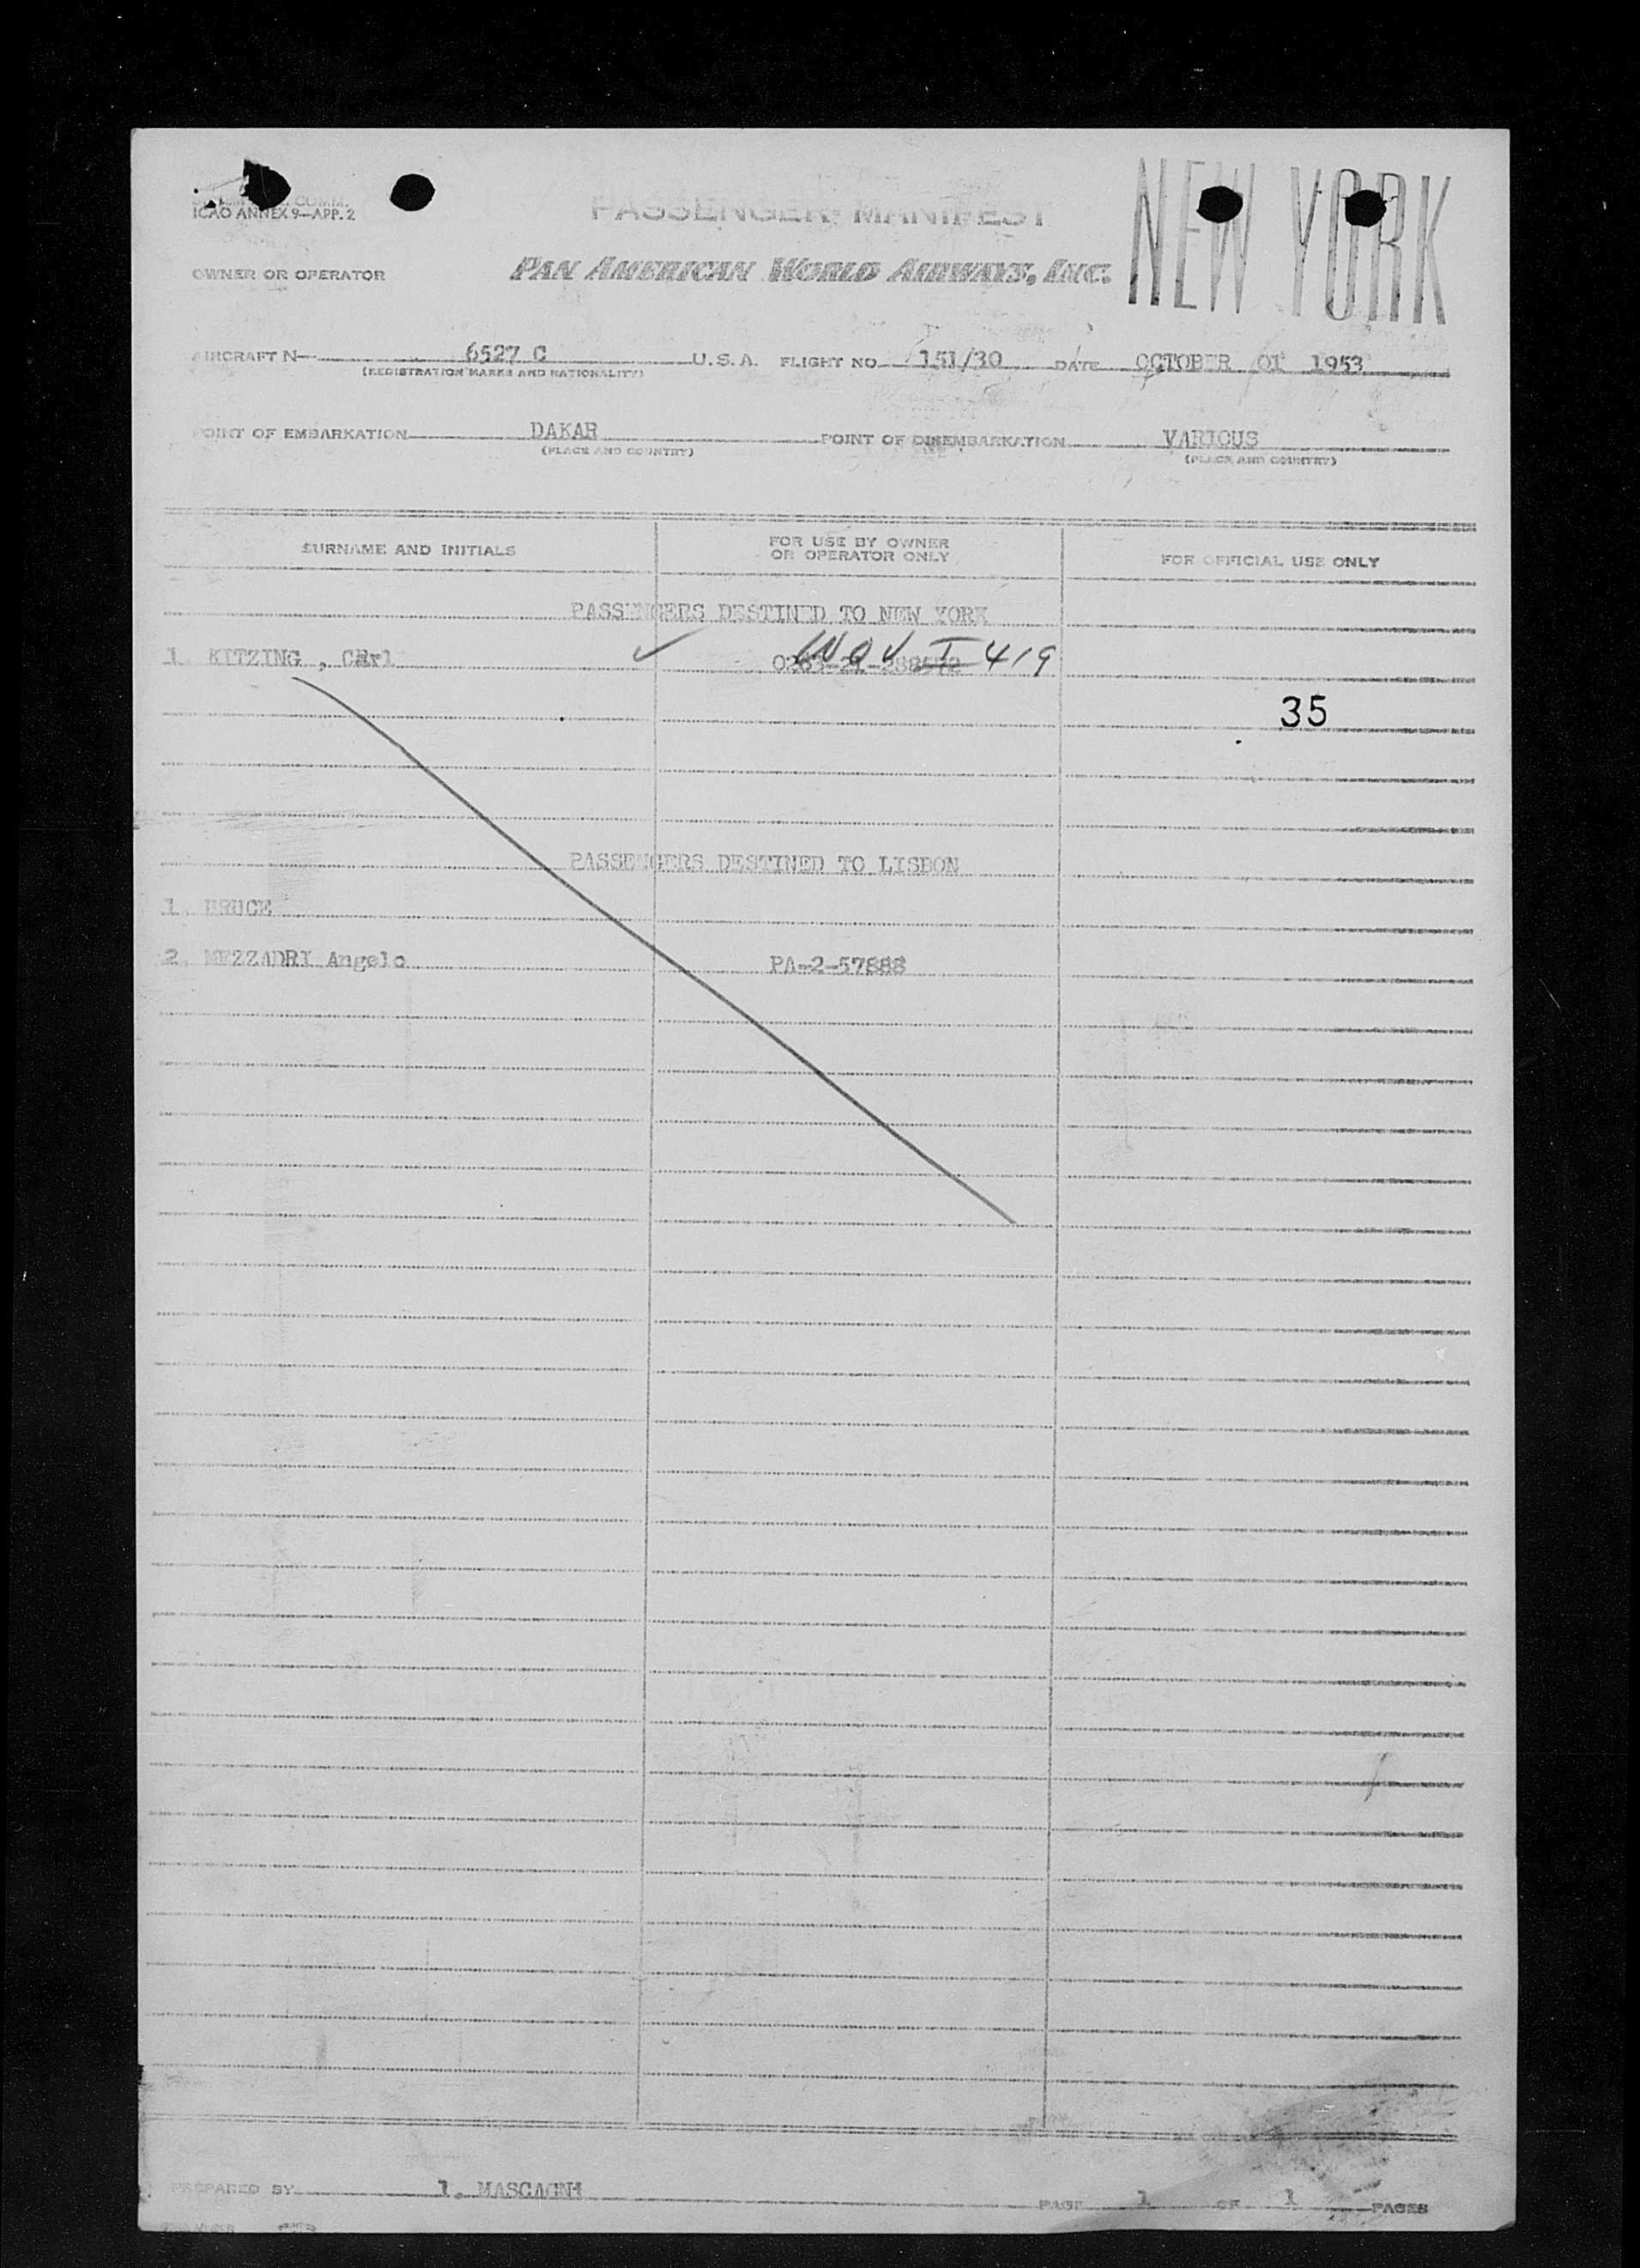 COMM.
ICAO ANNEX 9—APP. 2
PASSENGER MANIFEST
NEW YORK
OWNER OR OPERATOR
PAN AMERICAN WORLD AIRWAYS, INC.
AIRCRAFT N 6527 C U.S.A. FLIGHT NO 151/30 DATE OCTOBER 01 1953
(REGISTRATION MARKS AND NATIONALITY)
POINT OF EMBARKATION DAKAR POINT OF DISEMBARKATION VARIOUS
(PLACE AND COUNTRY) (PLACE AND COUNTRY)
SURNAME AND INITIALS FOR USE BY OWNER OR OPERATOR ONLY FOR OFFICIAL USE ONLY
PASSENGERS DESTINED TO NEW YORK
1. KITZING , Carl I 419
35
PASSENGERS DESTINED TO LISBON
1. BRUCE
2. MEZZADRI Angelo PA-2-57888
PREPARED BY 1. MASCAGNI
PAGE 1 OF 1 PAGES